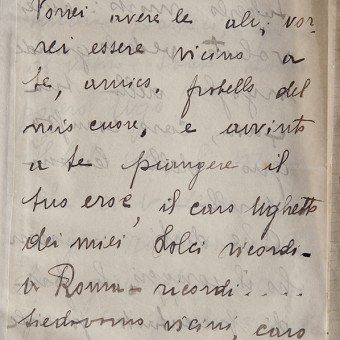 Vorrei avere le ali; vor-
rei essere vicino a
te, amico, fratello del
mio cuore, e avvinto
a te piangere il
tuo eroe, il caro Ughetto
dei miei dolci ricordi-
a Roma - ricordi....
vicini, caro